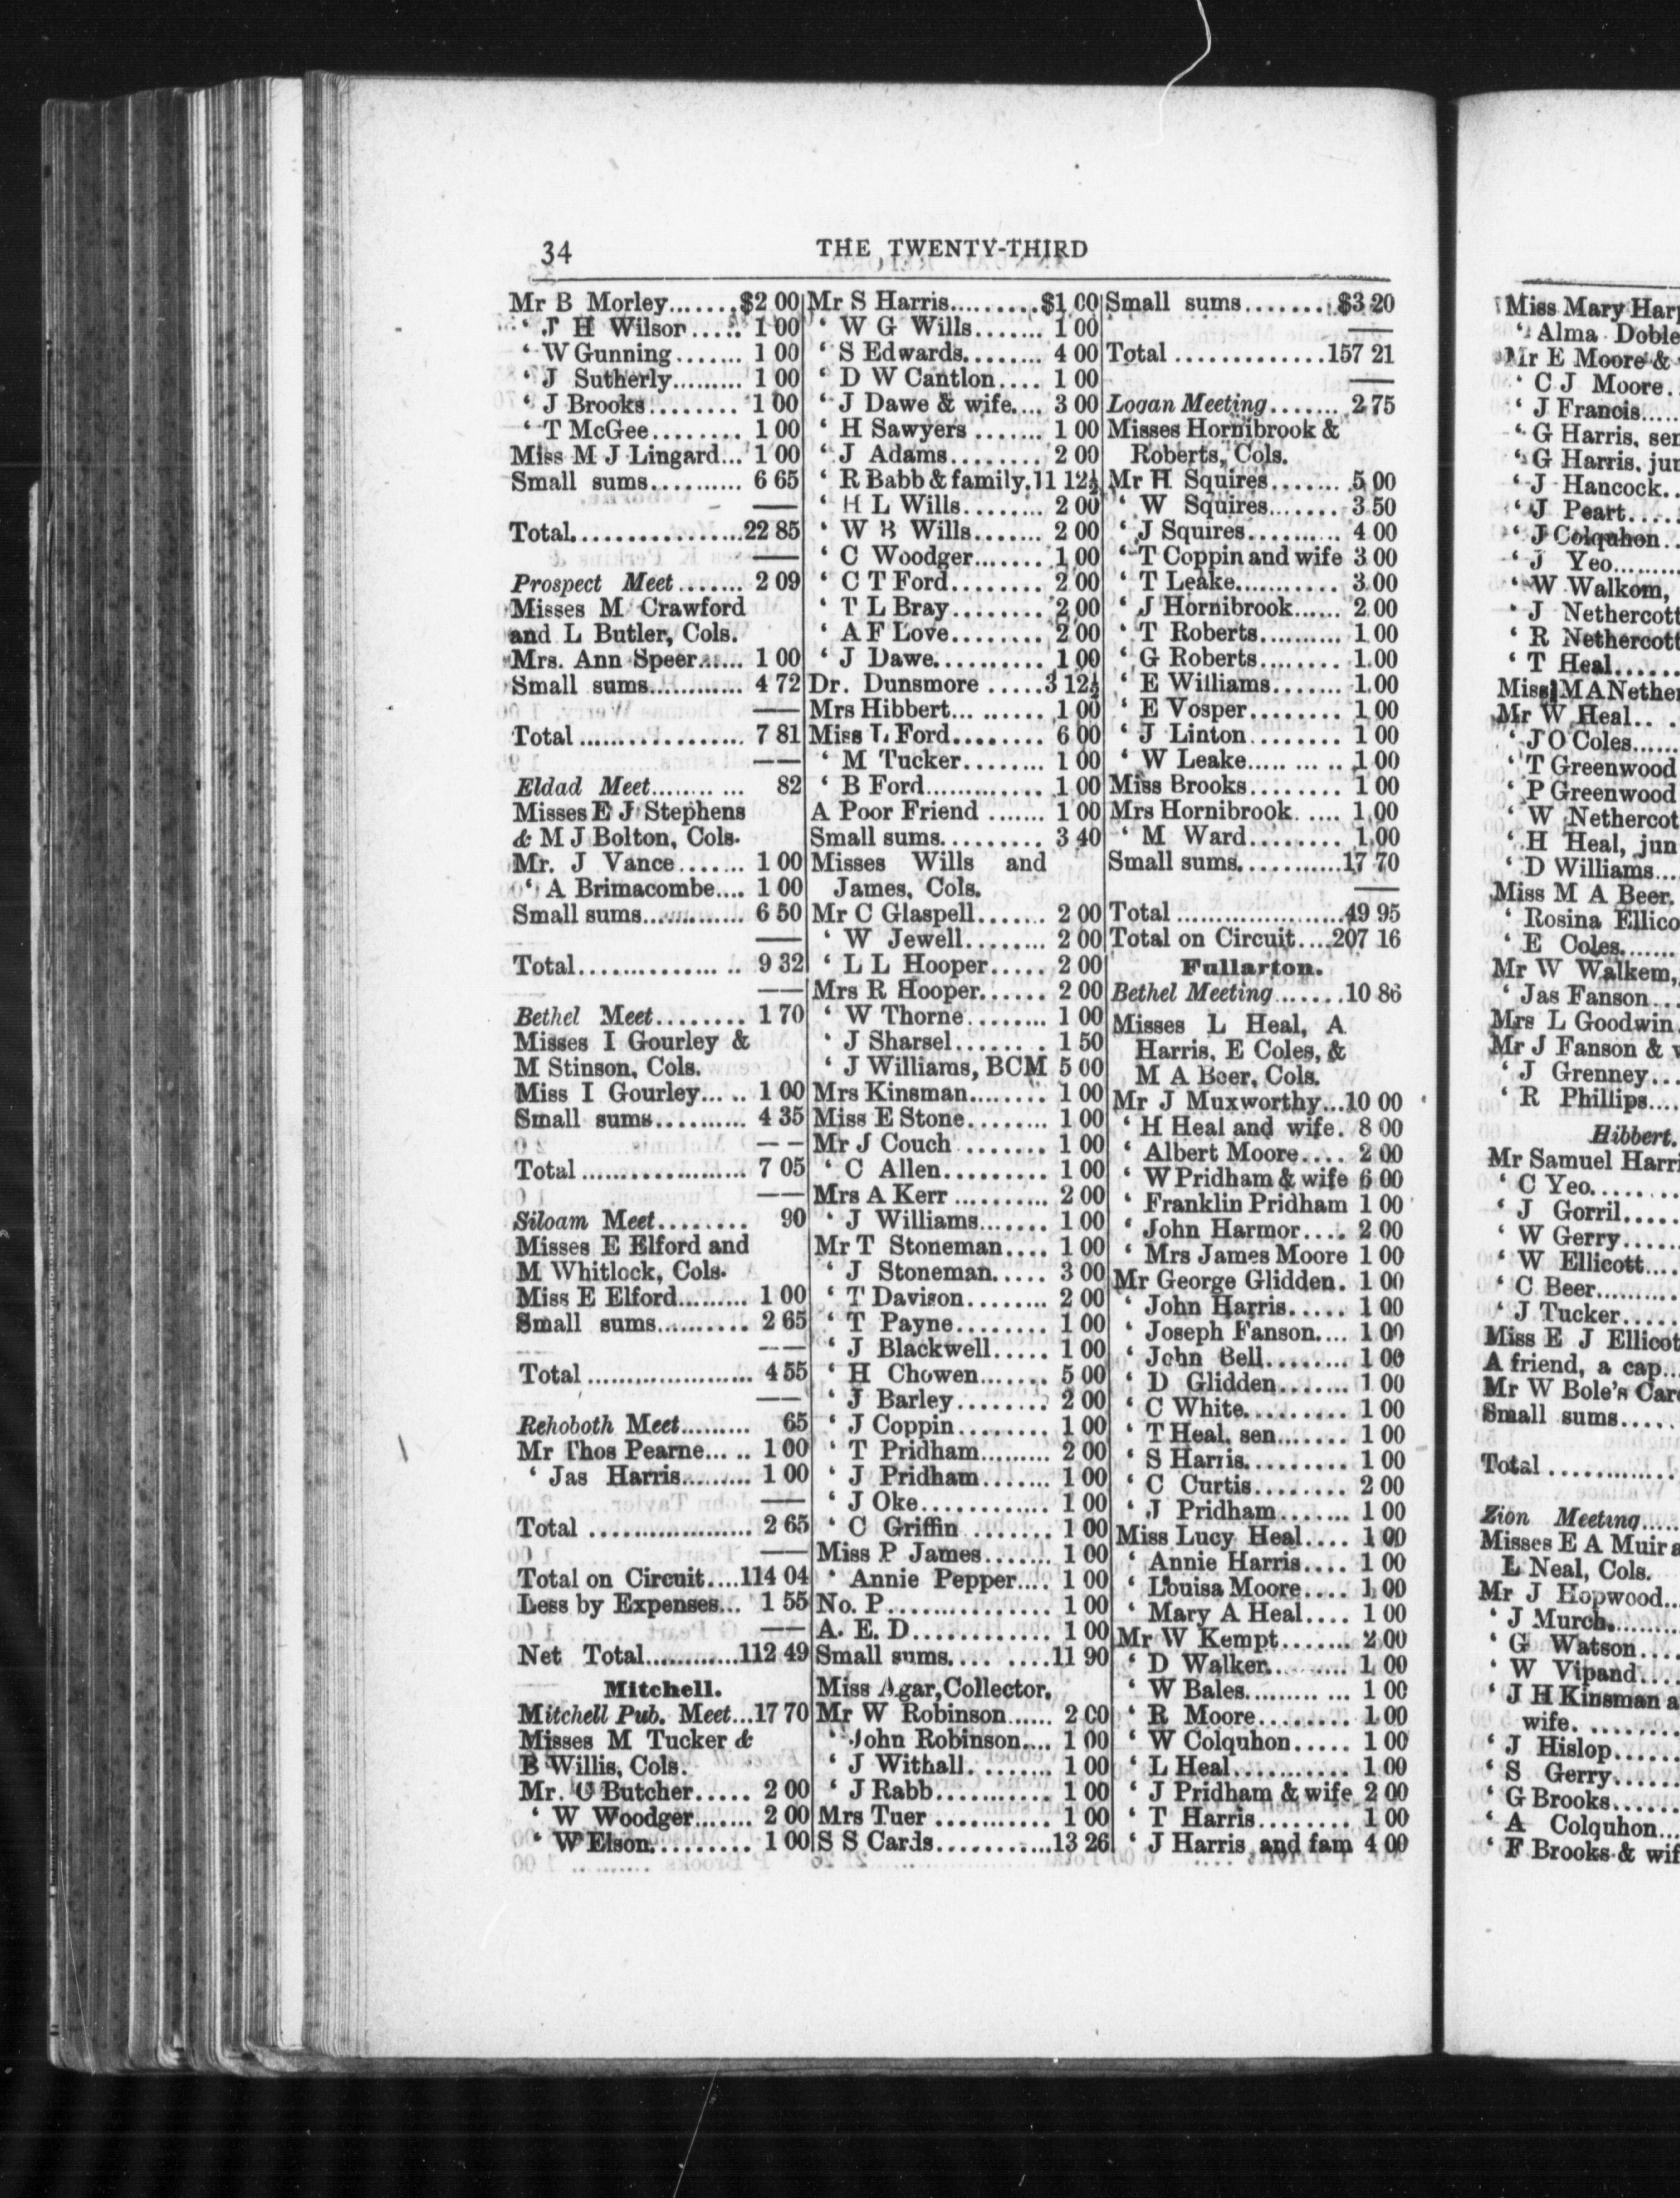 34
THE TWENTY-THIRD
Mr B Morley.......$2 00
‘ J H Wilsor..... 1 00
‘ W Gunning....... 1 00
‘ J Sutherly......... 1 00
‘ J Brooks........ 1 00
‘ T McGee........ 1 00
Miss M J Lingard... 1 00
Small sums.......... 6 65
Total.................22 85
Prospect Meet....... 2 09
Misses M Crawford
and L Butler, Cols.
Mrs. Ann Speer...... 1 00
Small sums............ 4 72
Total................. 7 81
Eldad Meet........... 82
Misses E J Stephens
& M J Bolton, Cols.
Mr. J Vance....... 1 00
‘ A Brimacombe.... 1 00
Small sums............ 6 50
Total................ 9 32
Bethel Meet......... 1 70
Misses I Gourley &
M Stinson, Cols.
Miss I Gourley..... 1 00
Small sums.......... 4 35
Total.................. 7 05
Siloam Meet........ 90
Misses E Elford and
M Whitlock, Cols.
Miss E Elford......... 1 00
Small sums.......... 2 65
Total..................... 4 55
Rehoboth Meet......... 65
Mr Thos Pearne..... 1 00
‘ Jas Harris......... 1 00
Total................... 2 65
Total on Circuit....114 04
Less by Expenses... 1 55
Net Total............112 49
Mitchell.
Mitchell Pub. Meet...17 70
Misses M Tucker &
B Willis, Cols.
Mr. C Butcher..... 2 00
‘ W Woodger....... 2 00
‘ W Elson.......... 1 00
Mr S Harris.........$1 00
‘ W G Wills....... 1 00
‘ S Edwards........ 4 00
‘ D W Cantlon.... 1 00
‘ J Dawe & wife.... 3 00
‘ H Sawyers....... 1 00
‘ J Adams......... 2 00
‘ R Babb & family.11 12½
‘ H L Wills........ 2 00
‘ W B Wills....... 2 00
‘ C Woodger....... 1 00
‘ C T Ford......... 2 00
‘ T L Bray......... 2 00
‘ A F Love........ 2 00
‘ J Dawe........... 1 00
Dr. Dunsmore.....3 12½
Mrs Hibbert......... 1 00
Miss L Ford........ 6 00
‘ M Tucker........ 1 00
‘ B Ford............. 1 00
A Poor Friend....... 1 00
Small sums.......... 3 40
Misses Wills and
James, Cols.
Mr C Glaspell....... 2 00
‘ W Jewell........ 2 00
‘ L L Hooper..... 2 00
Mrs R Hooper...... 2 00
‘ W Thorne........ 1 00
‘ J Sharsel........ 1 50
‘ J Williams, BCM 5 00
Mrs Kinsman........ 1 00
Miss E Stone........ 1 00
Mr J Couch....... 1 00
‘ C Allen.......... 1 00
Mrs A Kerr.......... 2 00
‘ J Williams....... 1 00
Mr T Stoneman.... 1 00
‘ J Stoneman..... 3 00
‘ T Davison........ 2 00
‘ T Payne......... 1 00
‘ J Blackwell..... 1 00
‘ H Chowen....... 5 00
‘ J Barley........ 2 00
‘ J Coppin......... 1 00
‘ T Pridham......... 2 00
‘ J Pridham....... 1 00
‘ J Oke............. 1 00
‘ C Griffin........ 1 00
Miss P James....... 1 00
‘ Annie Pepper.... 1 00
No. P................ 1 00
A. E. D............. 1 00
Small sums.........11 90
Miss Agar, Collector.
Mr W Robinson...... 2 00
‘ John Robinson.... 1 00
‘ J Withall......... 1 00
‘ J Rabb........... 1 00
Mrs Tuer............ 1 00
S S Cards............13 26
Small sums........$3 20
Total.............157 21
Logan Meeting....... 2 75
Misses Hornibrook &
Roberts, Cols.
Mr H Squires....... 5 00
‘ W Squires....... 3 50
‘ J Squires.......... 4 00
‘ T Coppin and wife 3 00
‘ T Leake............ 3 00
‘ J Hornibrook...... 2 00
‘ T Roberts.......... 1 00
‘ G Roberts........ 1 00
‘ E Williams....... 1 00
‘ E Vosper........ 1 00
‘ J Linton......... 1 00
‘ W Leake........... 1 00
Miss Brooks........ 1 00
Mrs Hornibrook..... 1 00
‘ M Ward........ 1 00
Small sums............17 70
Total.....................49 95
Total on Circuit....207 16
Fullarton.
Bethel Meeting.......10 86
Misses L Heal, A
Harris, E Coles, &
M A Beer, Cols.
Mr J Muxworthy...10 00
‘ H Heal and wife. 8 00
‘ Albert Moore.... 2 00
‘ W Pridham & wife 6 00
‘ Franklin Pridham 1 00
‘ John Harmor.... 2 00
‘ Mrs James Moore 1 00
Mr George Glidden. 1 00
‘ John Harris..... 1 00
‘ Joseph Fanson.... 1 00
‘ John Bell........ 1 00
‘ D Glidden....... 1 00
‘ C White.......... 1 00
‘ T Heal, sen....... 1 00
‘ S Harris.......... 1 00
‘ C Curtis........ 2 00
‘ J Pridham....... 1 00
Miss Lucy Heal.... 1 00
‘ Annie Harris.... 1 00
‘ Louisa Moore.... 1 00
‘ Mary A Heal.... 1 00
Mr W Kempt....... 2 00
‘ D Walker......... 1 00
‘ W Bales........... 1 00
‘ R Moore........ 1 00
‘ W Colquhon..... 1 00
‘ L Heal............ 1 00
‘ J Pridham & wife 2 00
‘ T Harris........ 1 00
‘ J Harris and fam 4 00
Miss Mary Harp
‘ Alma Doble
Mr E Moore &
‘ C J Moore..
‘ J Francis.....
‘ G Harris, sen
‘ G Harris, jun
‘ J Hancock..
‘ J Peart.....
‘ J Colquhon..
‘ J Yeo........
‘ W Walkom,
‘ J Nethercott
‘ R Nethercott
‘ T Heal.......
Miss M A Nether
Mr W Heal.. .
‘ J O Coles......
‘ T Greenwood
‘ P Greenwood
‘ W Nethercot
‘ H Heal, jun
‘ D Williams....
Miss M A Beer.
‘ Rosina Ellico
‘ E Coles.......
Mr W Walkem,
‘ Jas Fanson...
Mrs L Goodwin.
Mr J Fanson & w
‘ J Grenney...
‘ R Phillips....
Hibbert.
Mr Samuel Harri
‘ C Yeo........
‘ J Gorril.....
‘ W Gerry......
‘ W Ellicott....
‘ C Beer..........
‘ J Tucker......
Miss E J Ellicot
A friend, a cap...
Mr W Bole's Car
Small sums.....
Total............
Zion Meeting.....
Misses E A Muir a
L Neal, Cols.
Mr J Hopwood...
‘ J Murch........
‘ G Watson....
‘ W Vipand....
‘ J H Kinsman a
wife.........
‘ J Hislop.......
‘ S Gerry......
‘ G Brooks......
‘ A Colquhon...
‘ F Brooks & wif